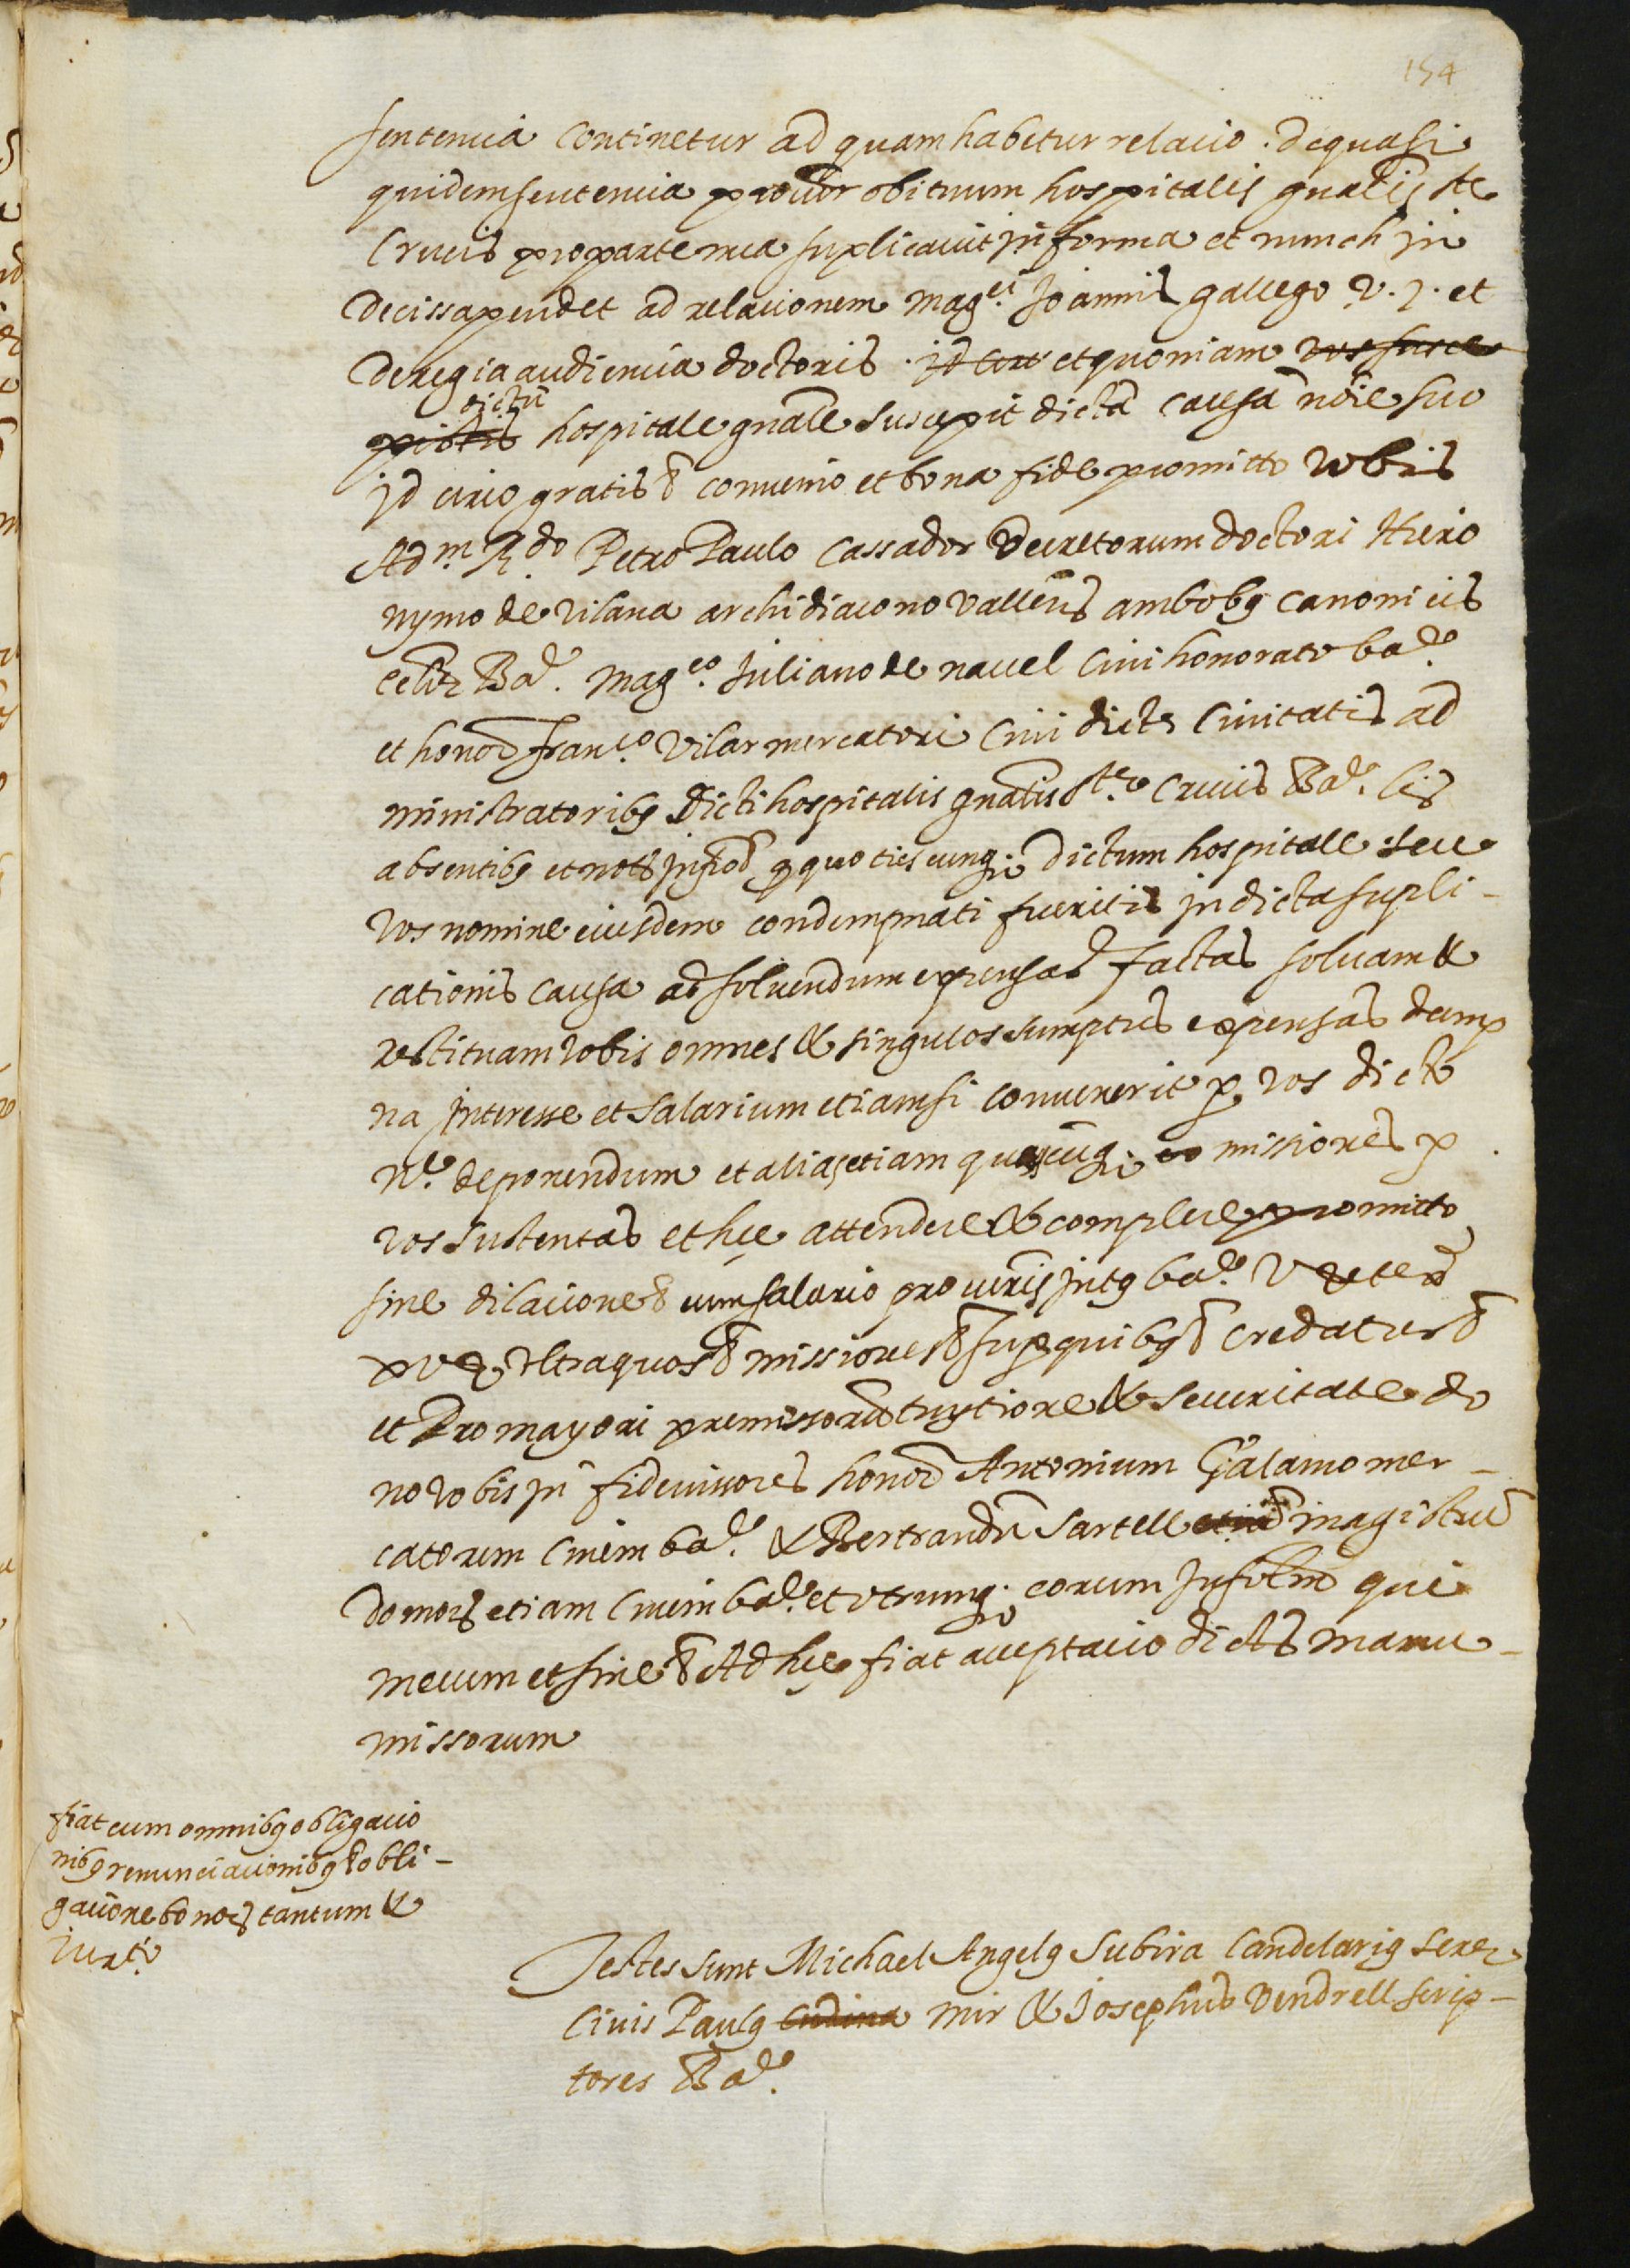 154
sentencia continetur ad quam habetur relacio. de qua si
quidem sentencia procur obituum hospitalis gnalis ste
Crucis pro parte mea suplicavit in forma et nunch in
decissa pendet ad relacionem mag.ci Joannis gallego V. J. et
de regia audiencia doctoris. id circo et quoniam vos susce
dictū
pistis hospitale gnale suscepit dictā causā nōie suo
id circo gratis & convenio et bona fide promitto vobis
Adm. R.do Petro Paulo Cassador Decretorum doctori Hiero
nymo de Vilana archidiacono Vallens ambobʒ canonicis
Bar.e mag.co Juliano de navel Civi honorato bar.e
et honor Fran.co Vilar mercatori Civi dicte Civitatis ad
ministratoribʒ dicti hospitalis gnalis ste Crucis Bar.e lis
absentibʒ et not infro ꝙ quotiescunqʒ dictum hospitale seu
vos nomine eiusdem condempnati fueritis in dicta supli-
cationis causa ad solvendum expensas factas solvam &
restituam vobis omnes & singulos sumptus expensas damp
na interesse et salarium etiam si convenerit p vos dicto
n.e deponendum et alias etiam quascūqʒ co missiones p
vos sustentas et hec attendere & complere promitto
sine dilacione & cum salario procuris intʒ bar.e V et extra
xv ʒ ultra quos & missiones & sup quibʒ & credatur &
et Pro mayori premissorū tuytione & securitate do
no vobis in fideiussores honor Antonium Galamo mer-
catorem Civem bar.e & Bertrandū Sartell magistrū
domorʒ etiam Civem bar.e et utrunqʒ eorum insolm qui
mecum et sine & Ad hec fiat acceptacio dictorʒ manu-
missorum
fiat cum omnibʒ obligacio
nibʒ renunciacionibʒ & obli-
gacione bonorʒ tantum &
Jurt.e
Testes sunt Michael Angelʒ Subira Candelariʒ cereʒ
Civis Paulʒ Mir & Josephus Vendrell scrip-
tores Bar.e